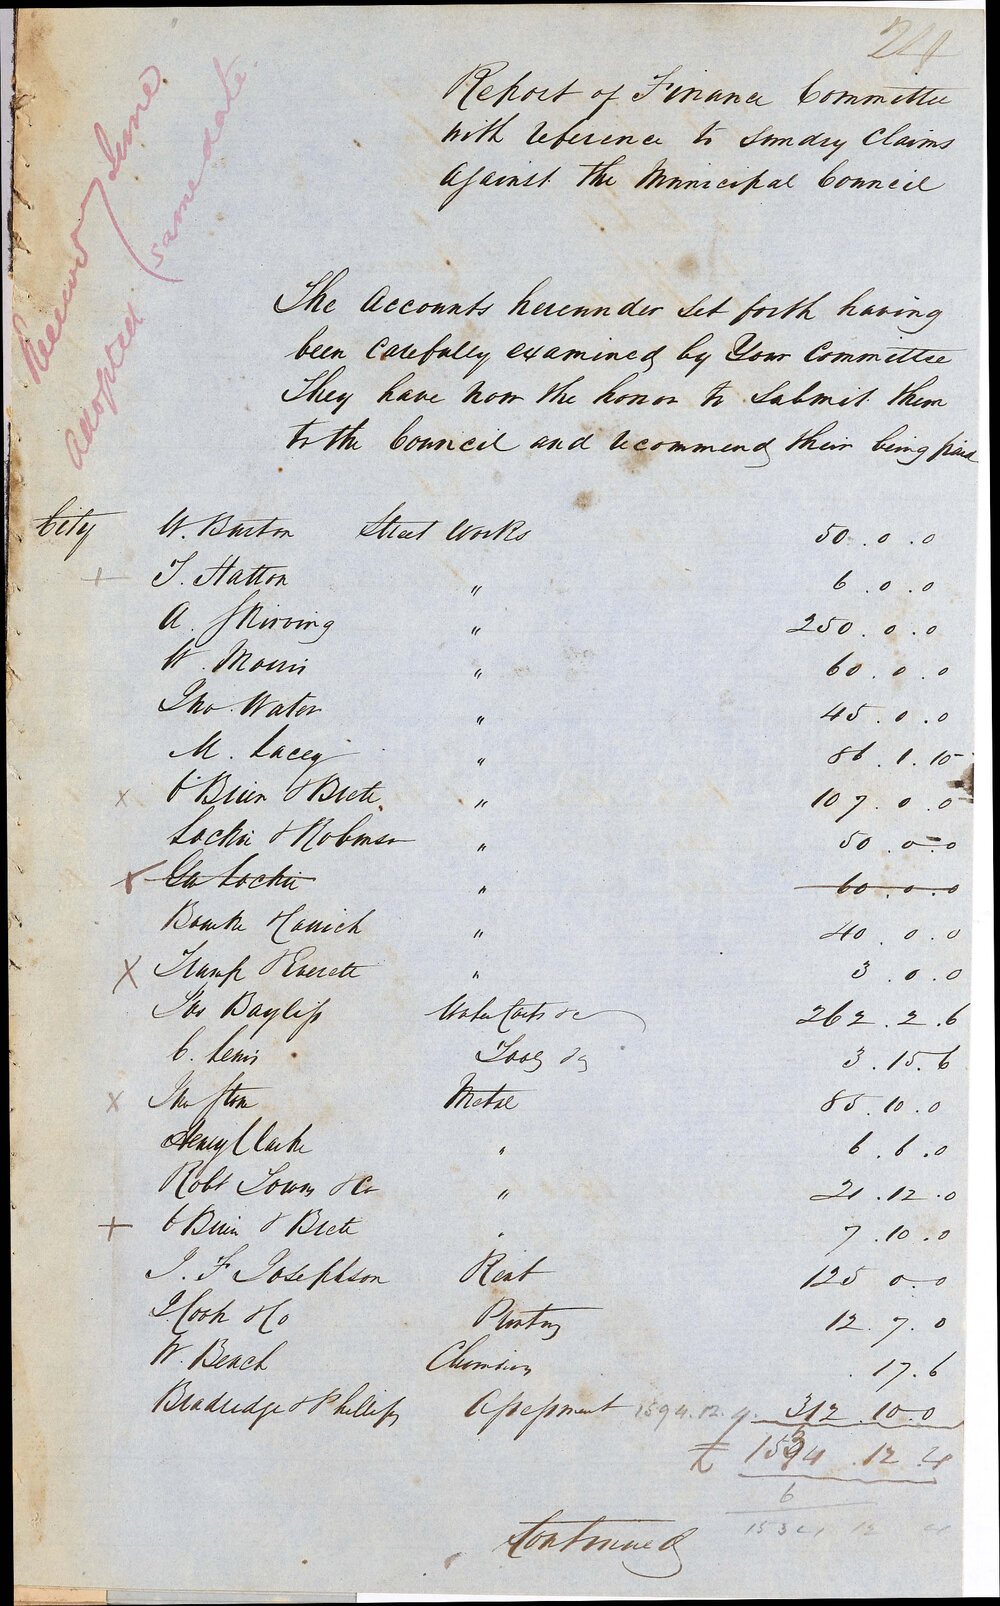 Report of Finance Committee
with reference to Sundry Claims
against the Municipal Council
Received June
adopted same date
The Accounts hereunder set forth having
been Carefully examined by Your Committee
They have now the honor to Submit them
to the Council and recommend their being paid
City W. Barton Street Works 50 . 0 . 0
+ T. Hatton " 6 . 0 . 0
A. Skirving " 250 . 0 . 0
W. Morris " 60 . 0 . 0
Tho Water " 45 . 0 . 0
M. Lacey " 86 . 1 . 10
x O'Brien & Brett " 107 . 0 . 0
Lockie & Robinson " 50 . 0 . 0
x Geo Lockie " 60 . 0 . 0
Bourke " 40 . 0 . 0
X & Everett " 3 . 0 . 0
Jas Bayliss Water Carts &c 262 . 2 . 6
C. Lewis Tools &c 3 . 15 . 6
x Stone Metal 85 . 10 . 0
Henry Clarke " 6 . 6 . 0
Robt Towns & Co " 21 . 12 . 0
+ O'Brien & Brett " 7 . 10 . 0
J. F. Josephson Rent 125 . 0 . 0
J. Cook & Co Printing 12 . 7 . 0
W. Beach 17 . 6
Bradridge & Phillips Assessment 1594.12.4. 312 . 10 . 0
£ 1534 . 12 . 4
6
1534 12 4
Continued